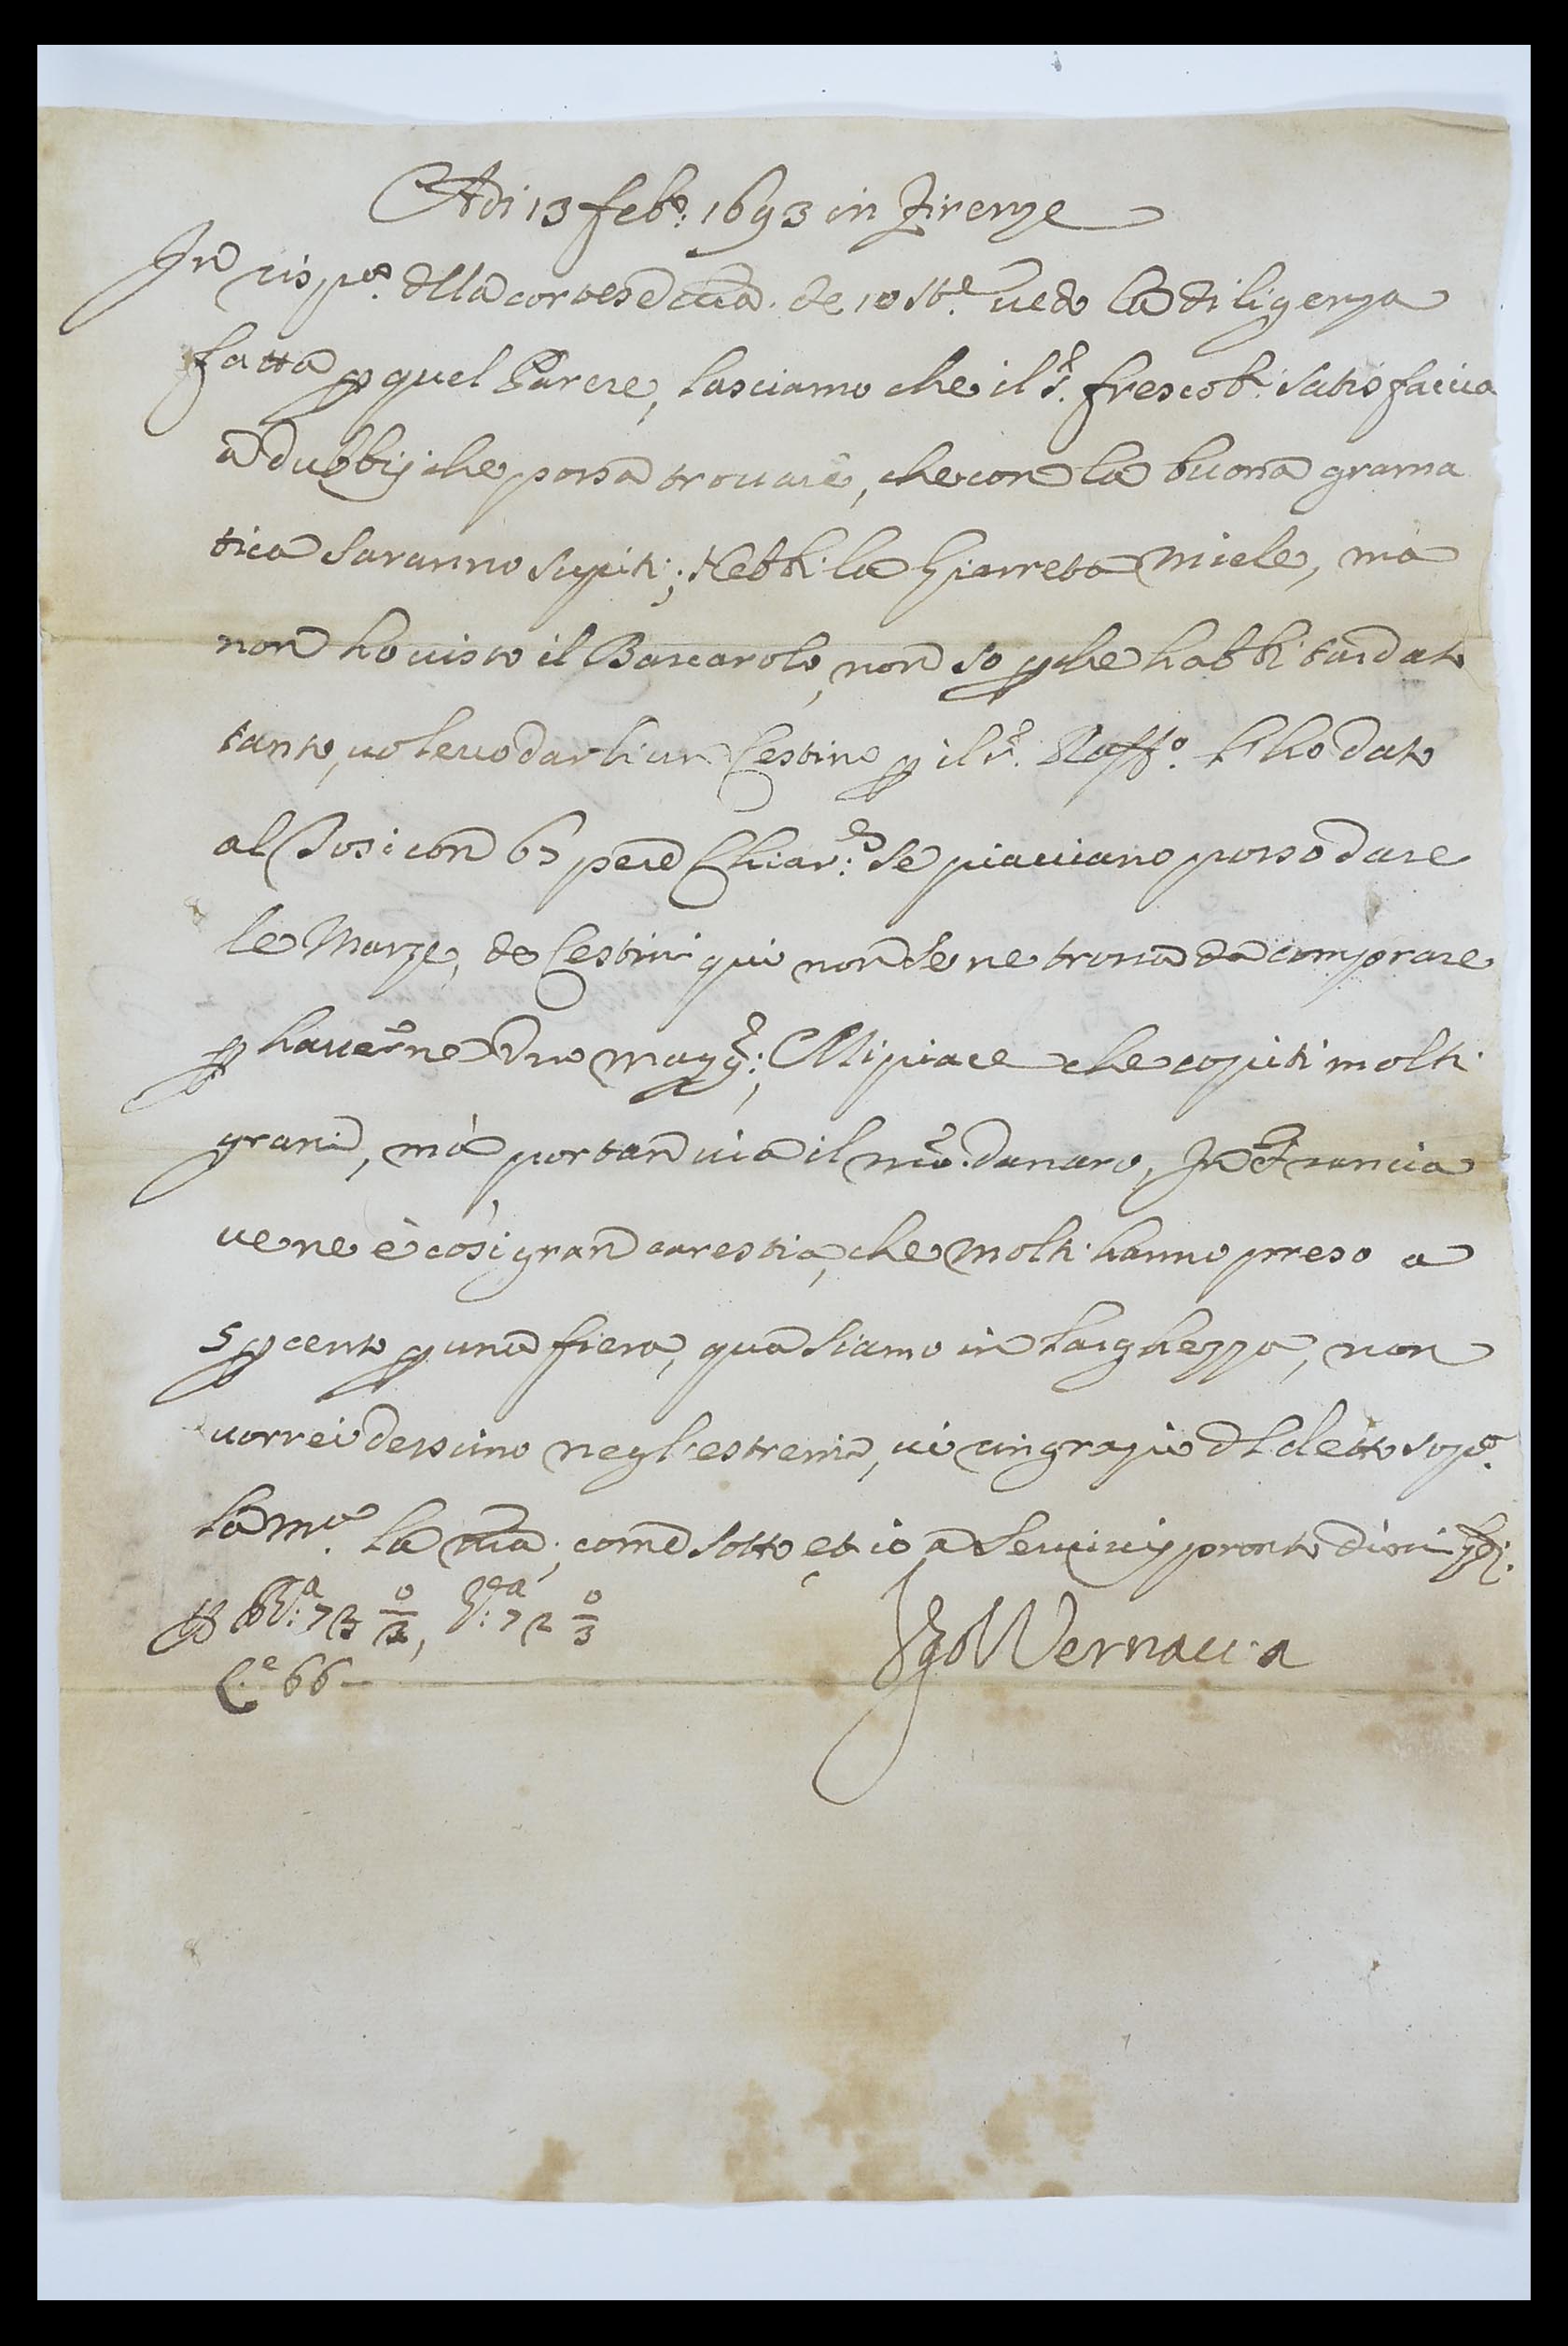 Adi 13 feb:o 1693 in Firenze
In risp.a della cortese vra. de 10 st.e vedo la diligenza
fatta p quel Parere, lasciamo che il S.r frescob: satisfaccia
a dubbij che possa trovare, che con la buona grama
tica saranno supiti; Hebbi la Giarreta Miele, ma
non ho visto il Barcarolo, non so p che habbi tardato
tanto, volevo darli un Cestino p il S.r Raff.o l'ho dato
al Sosi con 67 pere Chiar: se piacciano posso dare
le Marze, de Cestini qui non se ne trova da comprare
p haverne Duo magg:ri; Mi piace che copiti molti
grani, mà portan via il nro. danaro, In Francia
ve ne è così gran carestia, che molti hanno preso a
5 p cento p una fiera, qua siamo in larghezza, non
vorrei dessimo negl'estremi, vi ringrazio del detto sop.a
la m.ta la nra, come sotto, et io a servirvi pronto
p 73 72
C.e 66
Vernaccia